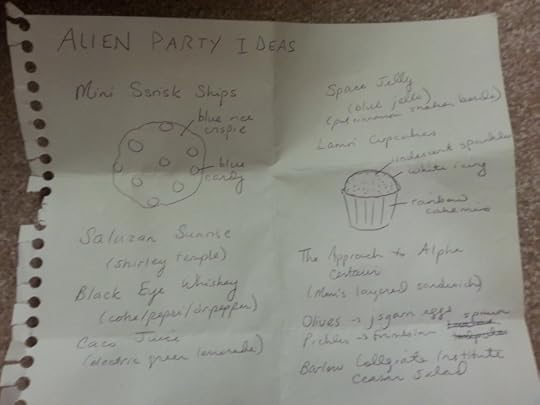 ALIEN PARTY IDEAS
Mini Ssrisk Ships
blue rice
crispie
blue
candy
Saluzan Sunrise
(shirley temple)
Black Eye Whiskey
(coke/pepsi/drpepper)
Caco Juice
(electric green lemonade)
Space Jelly
(blue jello)
Cupcakes
iridescent sparkles
white icing
rainbow
cake mix
The Approach to Alpha
Centauri
(Mom's layered sandwich)
Olives → eggs
Pickles →
Barlow Collegiate Institute
Ceasar Salad